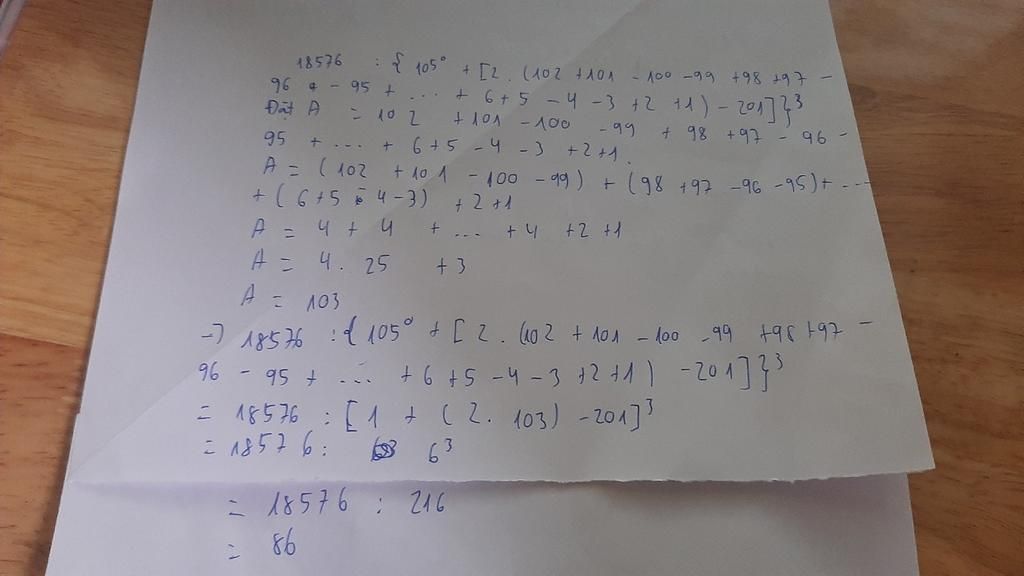 18576 : { 105⁰ + [2 . (102 + 101 - 100 - 99 + 98 + 97 -
96 - 95 + ... + 6 + 5 - 4 - 3 + 2 + 1) - 201]}³
Đặt A = 102 + 101 - 100 - 99 + 98 + 97 - 96 -
95 + ... + 6 + 5 - 4 - 3 + 2 + 1.
A = (102 + 101 - 100 - 99) + (98 + 97 - 96 - 95) + ...
+ (6 + 5 - 4 - 3) + 2 + 1
A = 4 + 4 + ... + 4 + 2 + 1
A = 4 . 25 + 3
A = 103
→ 18576 : { 105⁰ + [ 2 . (102 + 101 - 100 - 99 + 98 + 97 -
96 - 95 + ... + 6 + 5 - 4 - 3 + 2 + 1) - 201]}³
= 18576 : [1 + (2 . 103) - 201]³
= 18576 : 6³
= 18576 : 216
= 86